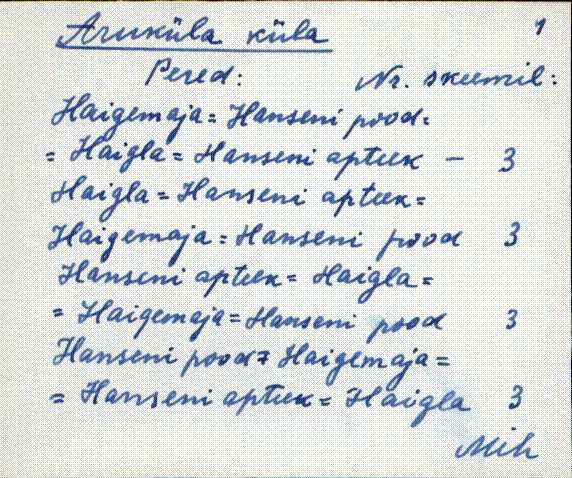 Aruküla küla 1
Pered: Nr. skeemil:
Haigemaja = Hanseni pood=
= Haigla = Hanseni apteek — 3
Haigla = Hanseni apteek =
Haigemaja = Hanseni pood 3
Hanseni apteek = Haigla =
= Haigemaja = Hanseni pood 3
Hanseni pood = Haigemaja =
= Hanseni apteek = Haigla 3
Mih